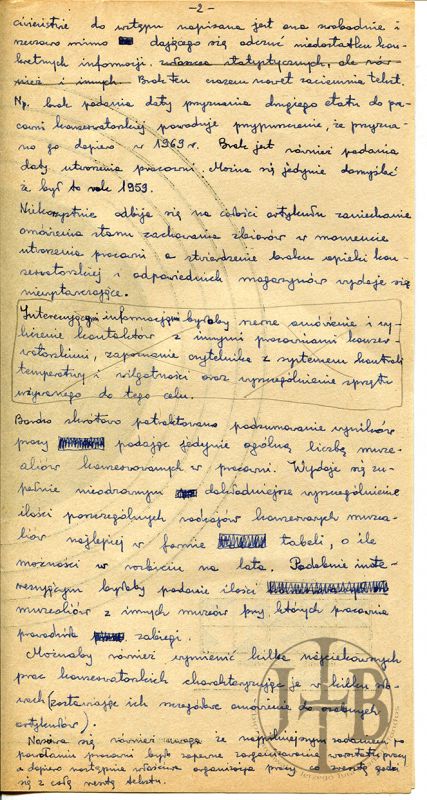 -2-
ciwieństwie do wstępu napisana jest ona swobodnie i
rzeczowo mimo dającego się odczuć niedostatku kon-
kretnych informacji. zwłaszcza statystycznych, ale rów-
nież i innych. Brak ten czasem nawet zaciemnia tekst.
Np. brak podania daty przyznania drugiego etatu do pra-
cowni konserwatorskiej powoduje przypuszczenie, że przyzna-
no go dopiero w 1969 r. Brak jest również podania
daty utworzenia pracowni. Można się jedynie domyślać
że był to rok 1959.
Niekorzystnie odbija się na całości artykułu zaniechanie
omówienia stanu zachowania zbiorów w momencie
utworzenia pracowni a stwierdzenie braku opieki kon-
serwatorskiej i odpowiednich magazynów wydaje się
niewystarczające.
Interesującą informacją byłoby omówienie i wy-
liczenie kontaktów z innymi pracowniami konser-
watorskimi, zapoznanie czytelnika z systemem kontroli
temperatury i wilgotności oraz wyszczególnienie sprzętu
używanego do tego celu.
Bardzo skrótowo potraktowano podsumowanie wyników
pracy podając jedynie ogólną liczbę muze-
aliów konserwowanych w pracowni. Wydaje się zu-
pełnie nieodzownym dokładniejsze wyszczególnienie
ilości poszczególnych rodzajów konserwowanych muzea-
liów najlepiej w formie tabeli, o ile
możności w rozbiciu na lata. Podobnie inte-
resującym byłoby podanie ilości
muzealiów z innych muzeów przy których pracownia
prowadziła zabiegi.
Możnaby również wymienić kilka najciekawszych
prac konserwatorskich charakteryzując je w kilku sło-
wach (zostawiając ich szczegółowe omówienie do osobnych
artykułów).
Nasuwa się również uwaga że najpilniejszym zadaniem po
powołaniu pracowni było zapewne zorganizowanie warsztatu pracy
i dopiero następnie właściwa organizacja pracy co zresztą godzi
się z całą resztą tekstu.
JTB